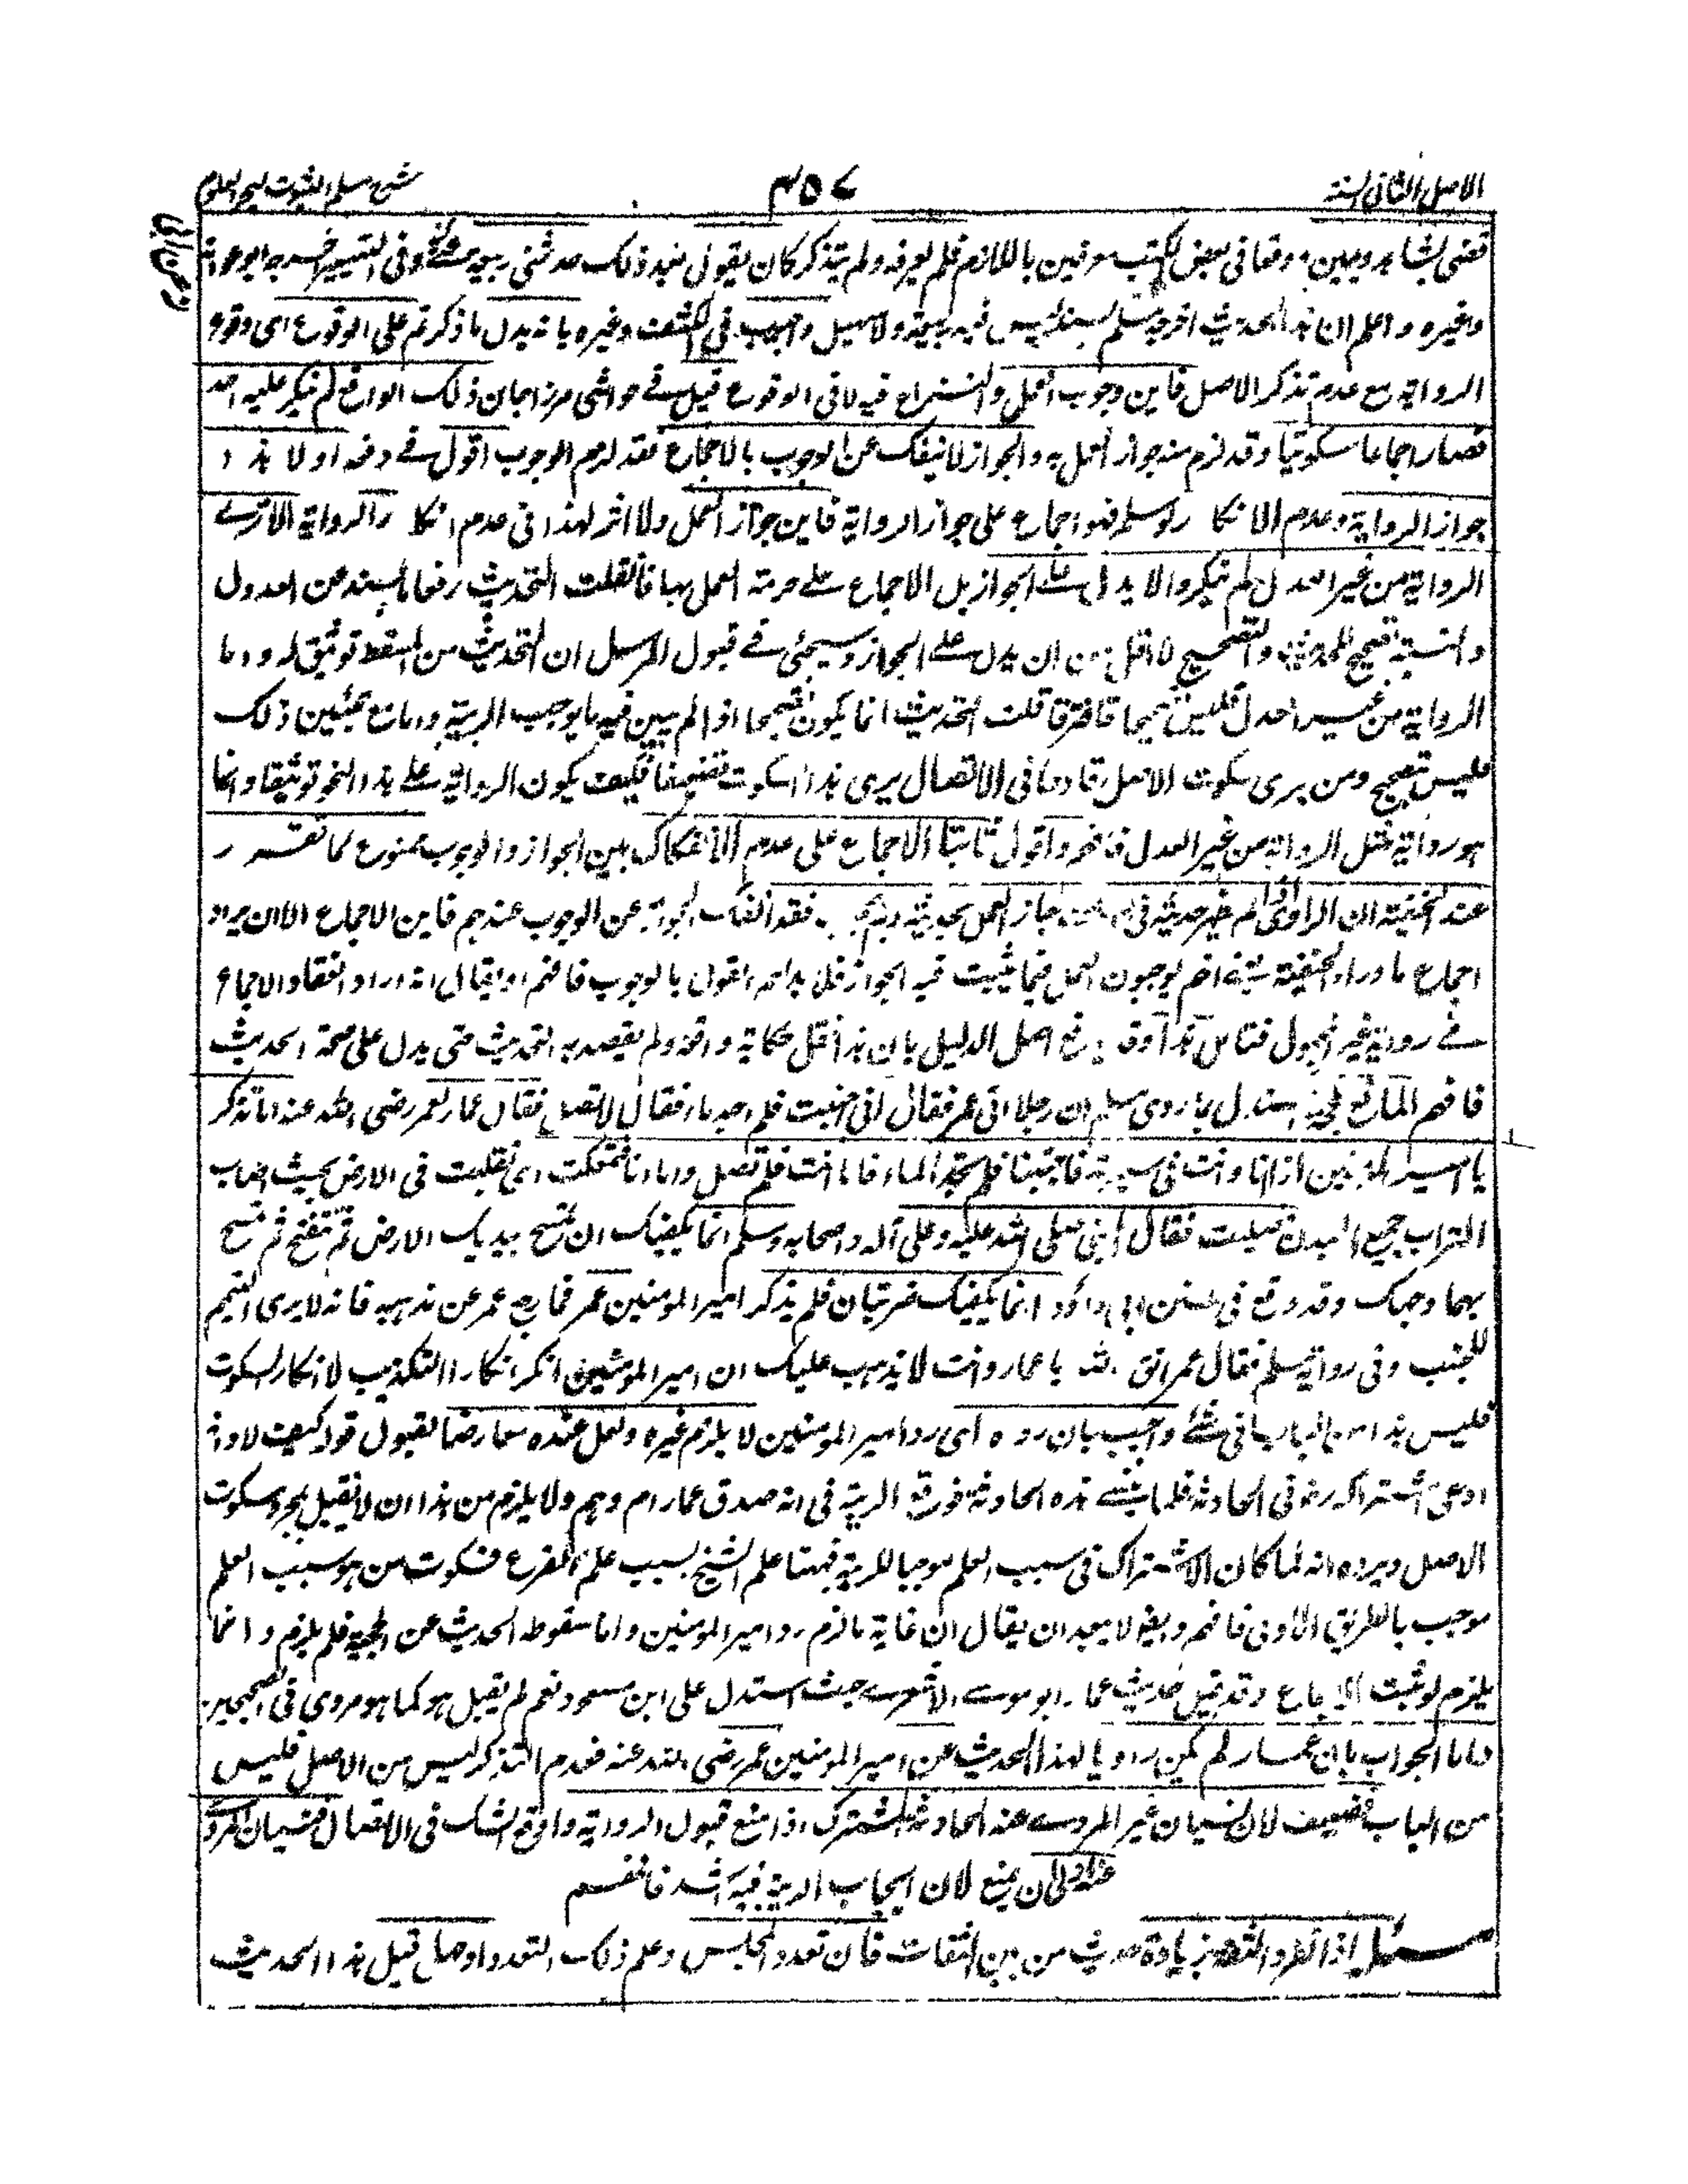 الاصل الثانی السنة
٤٥٧
شرح مسلم الثبوت لبحر العلوم
قضی بشاهد ویمین وقعا فی بعض الکتب معرفین باللام فلم یعرفه ولم یتذکر کان یقول بعد ذلک حدثنی ربیعة عنی وفی التیسیر اخرجه ابو عوانة
وغیره واعلم ان هذا الحدیث اخرجه مسلم بسند لیس فیه ربیعة ولا سهیل واجیب فی الکشف وغیره بانه یدل ما ذکرتم علی الوقوع ای وقوع
الروایة مع عدم تذکر الاصل فاین وجوب العمل والنزاع فیه لا فی الوقوع قیل فے حواشی میرزاجان ذلک الواقع لم ینکر علیه احد
فصار اجماعا سکوتیا وقد لزم منه جواز العمل به والجواز لا ینفک عن الوجوب بالاجماع فقد لزم الوجوب اقول فے دفعه اولا هذا
جواز الروایة وعدم الانکار لو سلم فهو اجماع علی جواز الروایة فاین جواز العمل ولا اثر لهذا فی عدم انکار الروایة الا تری
الروایة من غیر العدل لم ینکر والا یدل علی الجواز بل الاجماع علے حرمة العمل بها فان قلت التحدیث رفعا بالسند عن العدول
والنسبة تصحیح للحدیث والتصحیح لا اقل من ان یدل علے الجواز وسیجئ فے قبول المرسل ان التحدیث من المسقط توثیق له واما
الروایة من غیر العدل فلیس تصحیحا فافترقا قلت التحدیث انما یکون تصحیحا اذا لم یبین فیه ما یوجب الریبة واما مع تبیین ذلک
فلیس تصحیح ومن یری سکوت الاصل قادحا فی الاتصال یری هذا السکوت تضعیفا فکیف یکون الروایة علے هذا النحو توثیقا وانما
هو روایة مثل الروایة من غیر العدل فافهم واقول ثانیا الاجماع علی عدم الانفکاک بین الجواز والوجوب ممنوع لما تقرر
عند الحنفیة ان الراوی لم یظهر حدیثه فی جاز العمل بحدیثه ولم یجب فقد انفک الجواز عن الوجوب عندهم فاین الاجماع الا ان یراد
اجماع ما وراء الحنفیة یوجبون العمل فیما یثبت فیه الجواز فلا بد القول بالوجوب فافهم او یقال انه اراد انعقاد الاجماع
فے روایة غیر المجهول فتامل هذا وقد یدفع اصل الدلیل بان هذا نقل حکایة واقعة ولم یقصد به التحدیث حتی یدل علی صحة الحدیث
فافهم المانع للحجیة استدل بما روی مسلم ان رجلا اتی عمر فقال انی اجنبت فلم اجد ماء فقال لا تصل فقال عمار لعمر رضی الله عنه اما تذکر
یا امیر المؤمنین اذ انا وانت فی سریة فاجنبنا فلم نجد الماء فاما انت فلم تصل واما انا فتمعکت ای تقلبت فی الارض بحیث اصاب
التراب جمیع البدن وصلیت فقال النبی صلی الله علیه وعلی آله واصحابه وسلم انما یکفیک ان تمسح بیدیک الارض ثم تنفخ ثم تمسح
بهما وجهک وقد وقع فی سنن ابی داؤد انما یکفیک ضربتان فلم یذکر امیر المومنین عمر فما رجع عمر عن مذهبه فانه لا یری التیمم
للجنب وفی روایة مسلم فقال عمر اتق الله یا عمار وانت لا یذهب علیک ان امیر المومنین انکر انکارا التکذیب لا انکار السکوت
فلیس هذا من الباب فی شئ واجیب بان رده ای رد امیر المومنین لا یلزم غیره ولعل عنده معارضا لقبول قوله کیف لا وانه
ادعی اشتراکه معه فی الحادثة فلما نسی هذه الحادثة فوقع الریبة فی انه صدق عمار ام وهم ولا یلزم من هذا ان لا یقبل بمجرد سکوت
الاصل ویرده انه لما کان الاشتراک فی سبب العلم موجبا للریبة فهنا علم الشیخ سبب علم الفرع فسکوت من هو سبب العلم
موجب بالطریق الاولی فافهم وبعد لا یبعد ان یقال ان غایة ما لزم رد امیر المومنین واما سقوط الحدیث عن الحجیة فلم یلزم وانما
یلزم لو ثبت الاجماع وقد قبل حدیث عمار ابو موسے الاشعرے حیث استدل علی ابن مسعود نعم لم یقبل هو کما هو مروی فی الصحیحین
واما الجواب بان عمار لم یکن راویا لهذا الحدیث عن امیر المومنین عمر رضی الله عنه فعدم التذکر لیس من الاصل فلیس
من الباب فضعیف لان نسیان غیر المروے عنه الحادثة المشترکة اذا منع قبول الروایة واوقع الشک فی الاتصال فنسیان المروی
عنه اولی ان یمنع لان ایجاب الریبة فیه اشد فافهم
مسئله اذا انفرد الثقة بزیادة حدیث من بین الثقات فان تعدد المجلس وعلم ذلک التعدد اوصل قبل هذا الحدیث